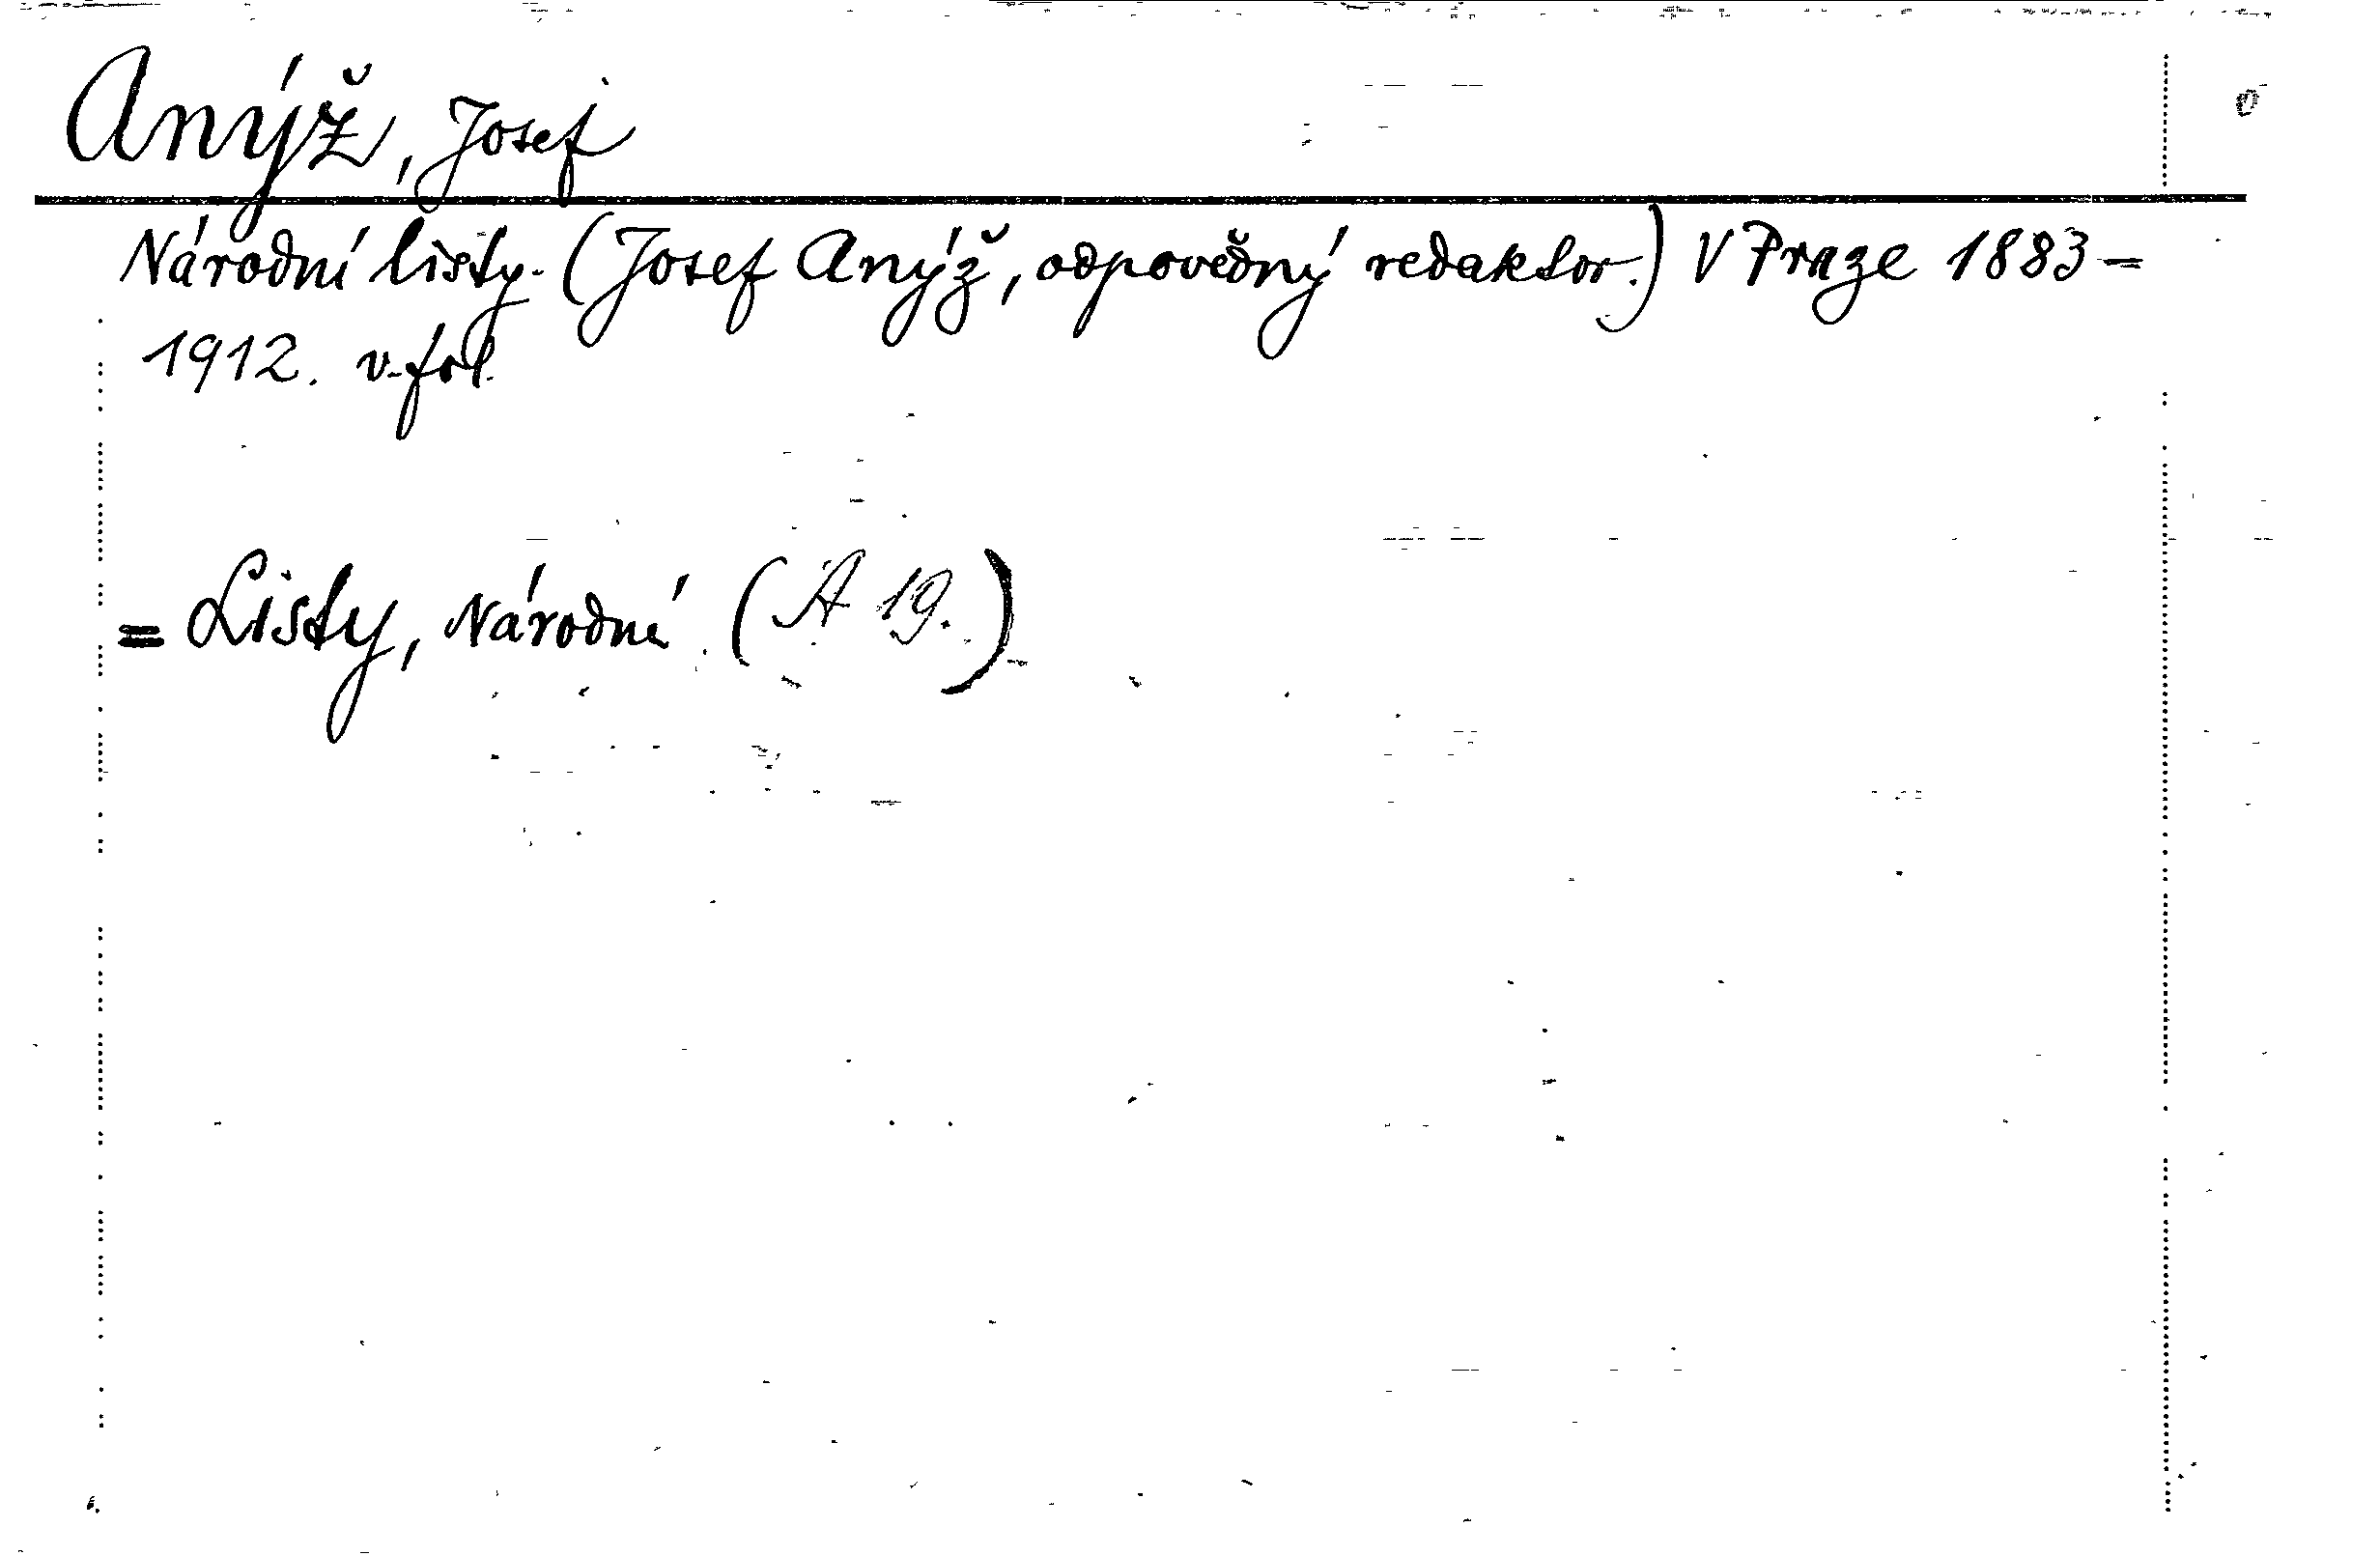 Anýž, Josef
Národní listy. (Josef Anýž, odpovědný redaktor.) V Praze 1883–
1912. v. fol.
= Listy, Národní (A 19.)